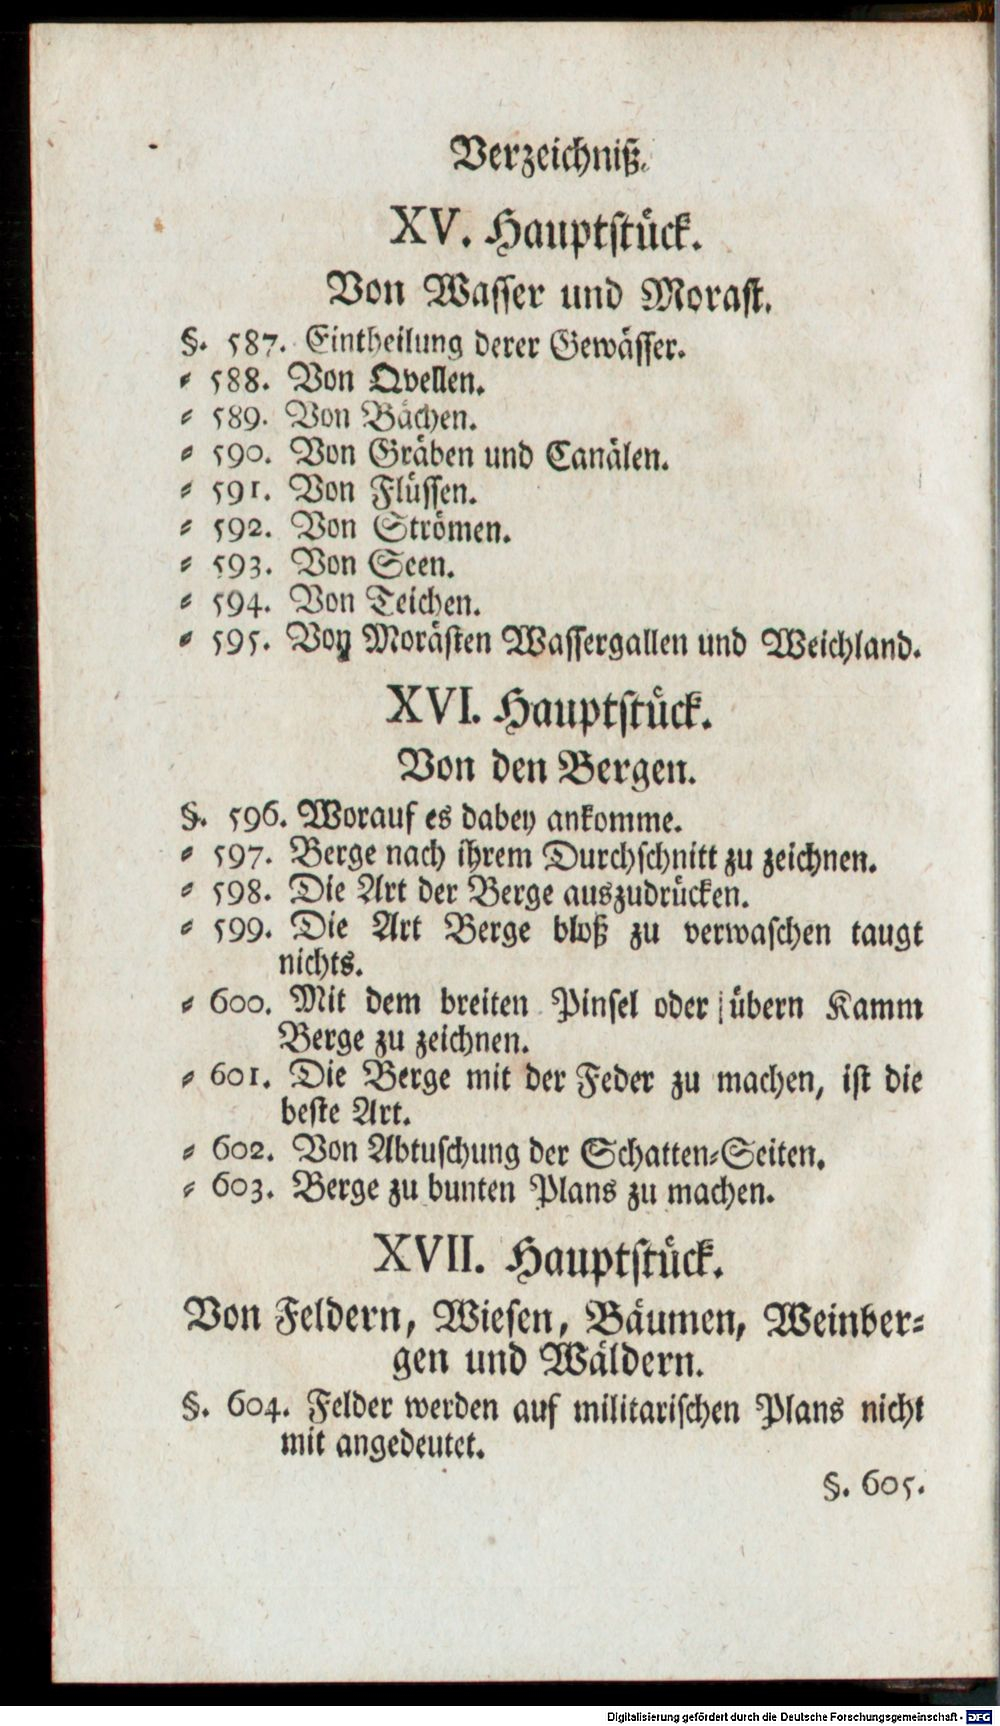 Verzeichniß.
XV. Hauptstück.
Von Wasser und Morast.
§. 587. Eintheilung derer Gewässer.
⸗ 588. Von Qvellen.
⸗ 589. Von Bächen.
⸗ 590. Von Gräben und Canälen.
⸗ 591. Von Flüssen.
⸗ 592. Von Strömen.
⸗ 593. Von Seen.
⸗ 594. Von Teichen.
⸗ 595. Von Morästen Wassergallen und Weichland.
XVI. Hauptstück.
Von den Bergen.
§. 596. Worauf es dabey ankomme.
⸗ 597. Berge nach ihrem Durchschnitt zu zeichnen.
⸗ 598. Die Art der Berge auszudrücken.
⸗ 599. Die Art Berge bloß zu verwaschen taugt
nichts.
⸗ 600. Mit dem breiten Pinsel oder übern Kamm
Berge zu zeichnen.
⸗ 601. Die Berge mit der Feder zu machen, ist die
beste Art.
⸗ 602. Von Abtuschung der Schatten⸗Seiten.
⸗ 603. Berge zu bunten Plans zu machen.
XVII. Hauptstück.
Von Feldern, Wiesen, Bäumen, Weinber⸗
gen und Wäldern.
§. 604. Felder werden auf militarischen Plans nicht
mit angedeutet.
§. 605.
Digitalisierung gefördert durch die Deutsche Forschungsgemeinschaft - DFG